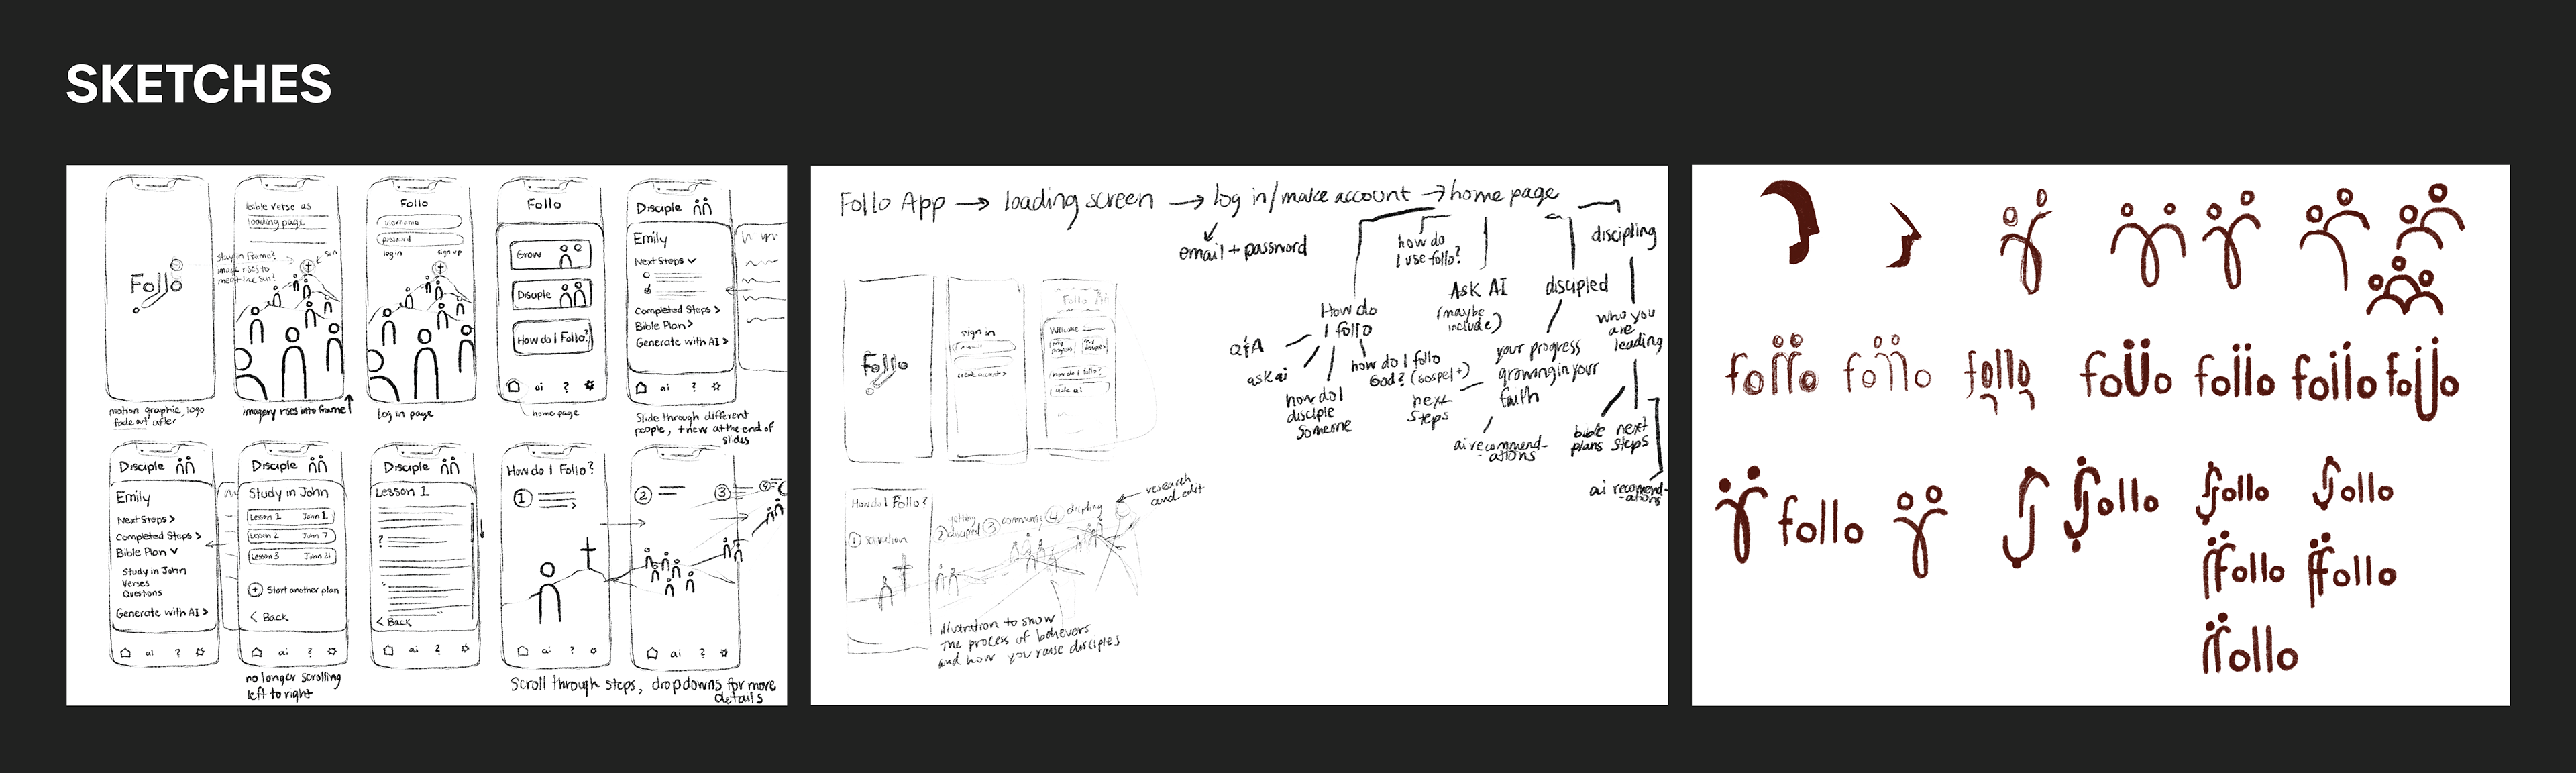 SKETCHES
Follo
motion graphic, logo
fade out after
bible verse as
loading page
stay in frame?
image rises to
meet the sun?
sun
imagery rises into frame
Follo
username
password
log in
sign up
log in page
Follo
Grow
Disciple
How do I Follo?
ai ?
home page
Disciple
Emily
Next Steps
Completed Steps >
Bible Plan >
Generate with AI >
ai ?
Slide through different
people, + new at the end of
slides
Disciple
Emily
Next Steps >
Completed Steps >
Bible Plan
Study in John
Verses
Questions
Generate with AI >
ai ?
Disciple
Study in John
Lesson 1 John 1
Lesson 2 John 7
Lesson 3 John 21
+ Start another plan
< Back
ai ?
no longer scrolling
left to right
Disciple
Lesson 1
?
< Back
ai ?
How do I Follo?
1
ai ?
2
3
4
ai ?
Scroll through steps, dropdowns for more
details
Follo App → loading screen → log in/make account → home page
email + password
how do
I use follo?
discipling
Ask AI
(maybe
include)
discipled
who you
are
leading
How do
I follo
Q&A
ask ai
how do I
disciple
someone
how do I follo
God? (gospel+)
next
steps
your progress
growing in your
faith
ai recommend-
ations
bible
plans
next
steps
ai recomend-
ations
Follo
sign in
create account >
Follo
Welcome
How do I Follo?
ask ai
How do I Follo?
1 salvation
2 getting
discipled
3 community
4 discipling
research
and edit
illustration to show
the process of believers
and how you raise disciples
follo
follo
follo
follo
follo
follo
follo
follo
follo
follo
follo
follo
follo
follo